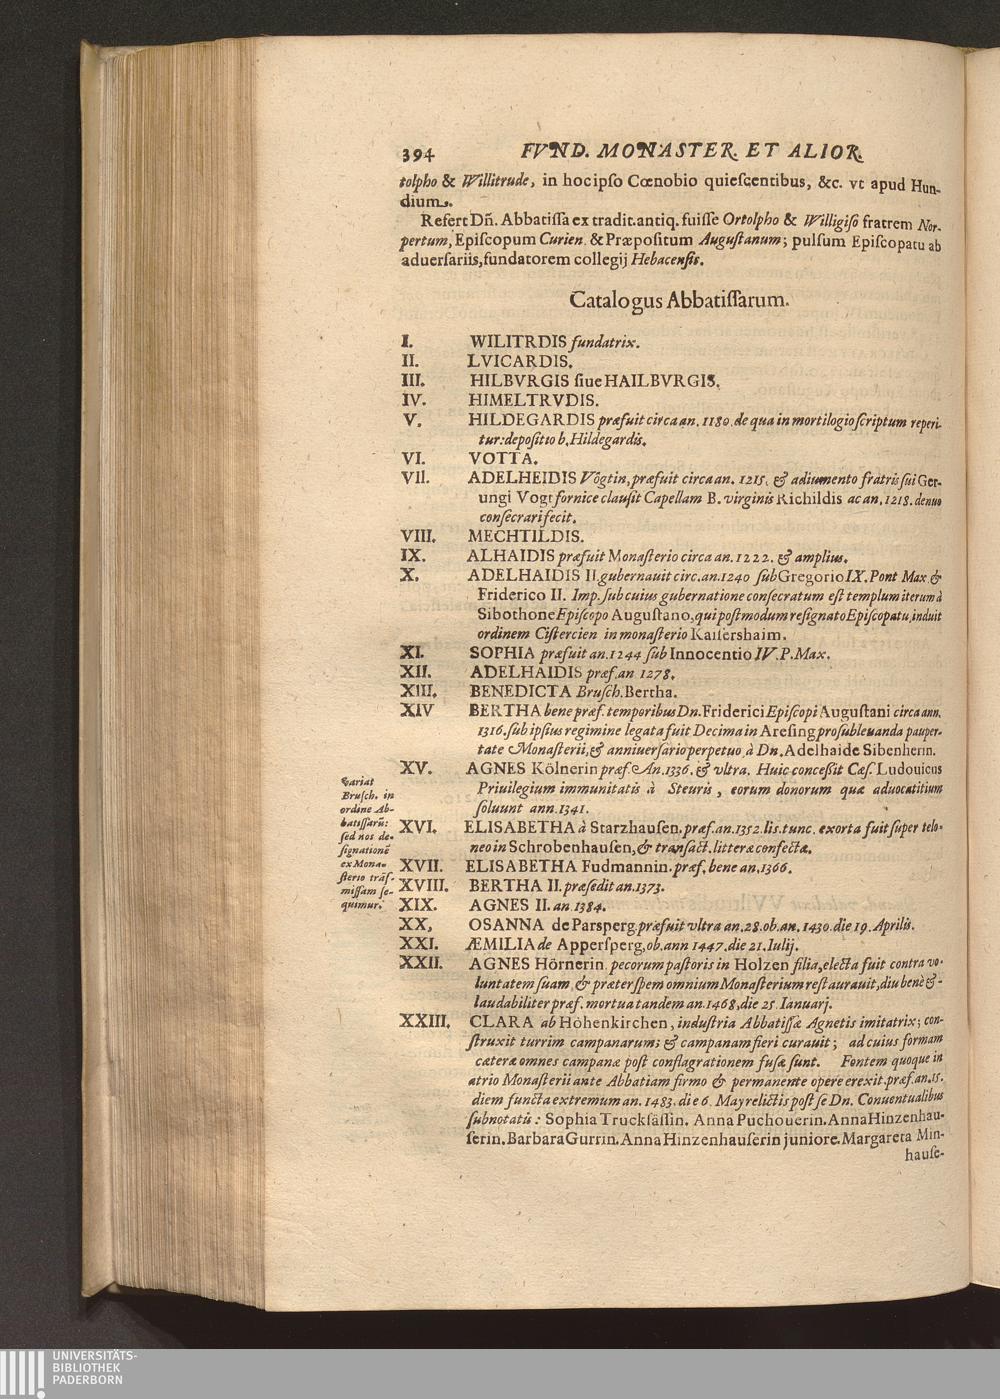 394 FVND. MONASTER. ET ALIOR.
tolpho & Willitrude, in hoc ipſo Cœnobio quieſcentibus, &c. vt apud Hun-
dium.
Refert Dn̄. Abbatiſſa ex tradit. antiq. fuiſſe Ortolpho & Willigiſo fratrem Nor-
pertum, Epiſcopum Curien. & Præpoſitum Auguſtanum; pulſum Epiſcopatu ab
aduerſariis, fundatorem collegij Hebacenſis.
Catalogus Abbatiſſarum.
I. WILITRDIS fundatrix.
II. LVICARDIS.
III. HILBVRGIS ſiue HAILBVRGIS.
IV. HIMELTRVDIS.
V. HILDEGARDIS præfuit circa an. 1180. de qua in mortilogio ſcriptum reperi-
tur: depoſitio b. Hildegardis.
VI. VOTTA.
VII. ADELHEIDIS Vögtin, præfuit circa an. 1215. & adiumento fratris ſui Ger-
ungi Vogt fornice clauſit Capellam B. virginis Richildis ac an. 1218. denuo
conſecrari fecit.
VIII. MECHTILDIS.
IX. ALHAIDIS præfuit Monaſterio circa an. 1222. & amplius.
X. ADELHAIDIS II. gubernauit circ. an. 1240 ſub Gregorio IX. Pont Max. &
Friderico II. Imp. ſub cuius gubernatione conſecratum eſt templum iterum à
Sibothone Epiſcopo Auguſtano, qui poſtmodum reſignato Epiſcopatu, induit
ordinem Ciſtercien in monaſterio Kaiſershaim.
XI. SOPHIA præfuit an. 1244 ſub Innocentio IV. P. Max.
XII. ADELHAIDIS præf. an 1278.
XIII. BENEDICTA Bruſch. Bertha.
XIV BERTHA bene præf. temporibus Dn. Friderici Epiſcopi Auguſtani circa ann.
1316. ſub ipſius regimine legata fuit Decima in Areſing pro ſubleuanda pauper-
tate Monaſterii, & anniuerſario perpetuo, à Dn. Adelhaide Sibenherin.
XV. AGNES Kölnerin præf. An. 1336. & vltra. Huic conceßit Cæſ. Ludouicus
Priuilegium immunitatis à Steuris, eorum donorum quæ aduocatitium
ſoluunt ann. 1341.
XVI. ELISABETHA à Starzhauſen. præf. an. 1352. lis. tunc. exorta fuit ſuper telo-
neo in Schrobenhauſen, & tranſact. litteræ confectæ.
XVII. ELISABETHA Fudmannin. præf. bene an. 1366.
XVIII. BERTHA II. præſedit an. 1373.
XIX. AGNES II. an. 1384.
XX. OSANNA de Parsperg. præfuit vltra an. 28. ob. an. 1430. die 19. Aprilis.
XXI. ÆMILIA de Apperſperg, ob. ann 1447. die 21. Iulij.
XXII. AGNES Hörnerin. pecorum paſtoris in Holzen filia, electa fuit contra vo-
luntatem ſuam, & præter ſpem omnium Monaſterium reſtaurauit, diu benè &
laudabiliter præf. mortua tandem an. 1468, die 25. Ianuarj.
XXIII. CLARA ab Höhenkirchen, induſtria Abbatiſſæ Agnetis imitatrix; con-
ſtruxit turrim campanarum; & campanam fieri curauit; ad cuius formam
cæteræ omnes campanæ poſt conflagrationem fuſæ ſunt. Fontem quoque in
atrio Monaſterii ante Abbatiam firmo & permanente opere erexit. præf. an. 15.
diem functa extremum an. 1483. die 6. May relictis poſt ſe Dn. Conuentualibus
ſubnotatis: Sophia Truckſäſſin. Anna Puchouerin. Anna Hinzenhau-
ſerin. Barbara Gurrin. Anna Hinzenhauſerin juniore. Margareta Min-
hauſe-
Variat
Bruſch. in
ordine Ab-
batiſſarū:
ſed nos de-
ſignationē
ex Mona-
ſterio trāſ-
miſſam ſe-
quimur.
UNIVERSITÄTS-
BIBLIOTHEK
PADERBORN